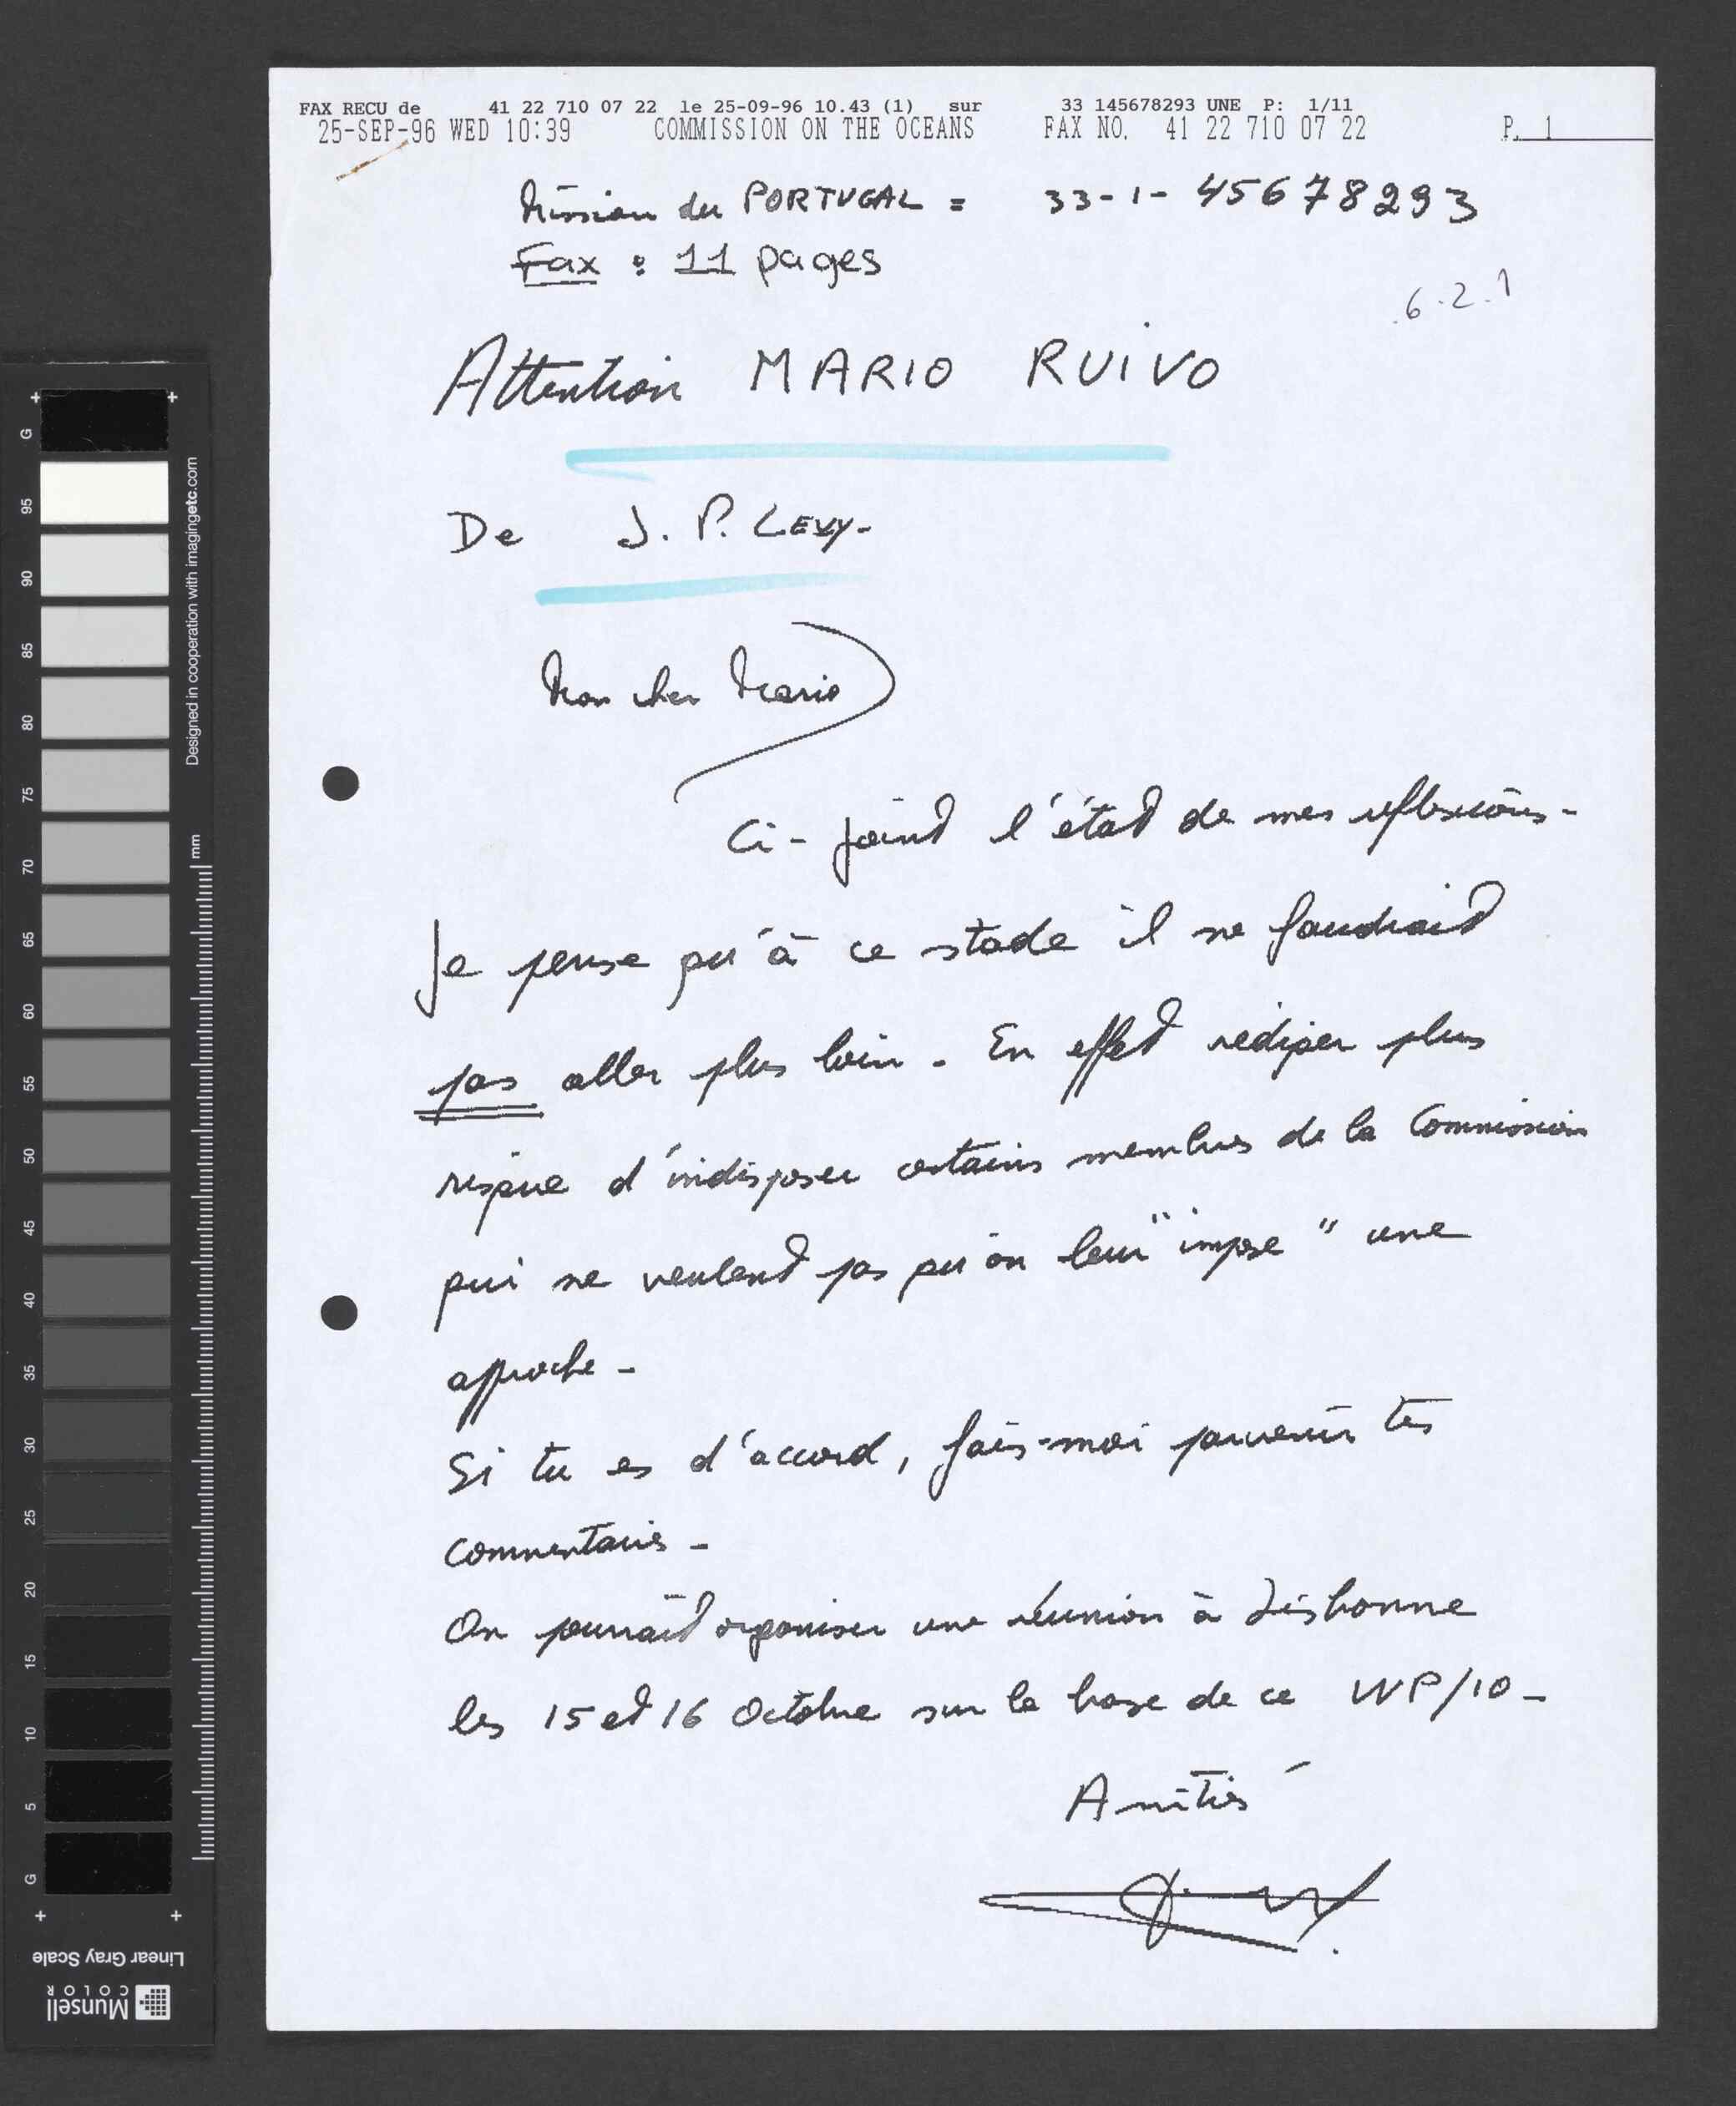 FAX RECU de 41 22 710 07 22 le 25-09-96 10.43 (1) sur 33 145678293 UNE P: 1/11
25-SEP-96 WED 10:39 COMMISSION ON THE OCEANS FAX NO. 41 22 710 07 22 P. 1
Mission du PORTUGAL = 33-1-45678293
Fax : 11 pages
6.2.1
Attention MARIO RUIVO
De J. P. LEVY-
Mon cher Mario
Ci-joint l'état de mes réflexions-
Je pense qu'à ce stade il ne faudrait
pas aller plus loin. En effet rédiger plus
risque d'indisposer certains membres de la Commission
qui ne veulent pas qu'on leur "impose" une
approche-
Si tu es d'accord, fais-moi parvenir tes
commentaires-
On pourrait organiser une réunion à Lisbonne
les 15 et 16 Octobre sur la base de ce WP/10-
Amitiés
G
95
90
85
80
75
70
65
60
55
50
45
40
35
30
25
20
15
10
5
G
mm
Designed in cooperation with imagingetc.com
Linear Gray Scale
Munsell
COLOR